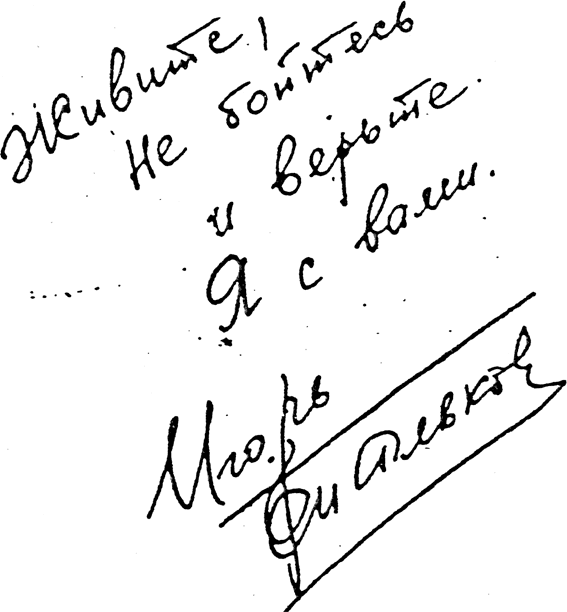 Живите,
Не бойтесь
и верьте.
Я с вами.
Игорь
Тальков